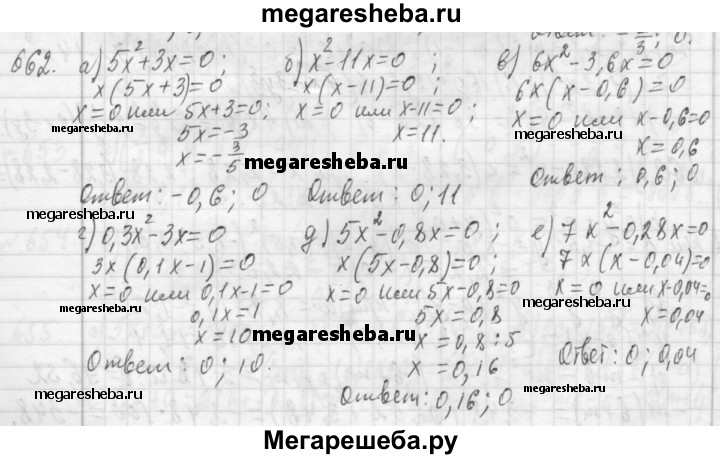 megaresheba.ru
662. а) 5x²+3x=0;
x(5x+3)=0
x=0 или 5x+3=0;
5x=-3
x=-3/5
Ответ: -0,6; 0
б) x²-11x=0;
x(x-11)=0;
x=0 или x-11=0;
x=11.
Ответ: 0; 11
в) 6x²-3,6x=0
6x(x-0,6)=0
x=0 или x-0,6=0
x=0,6
Ответ: 0,6; 0
г) 0,3x²-3x=0.
3x(0,1x-1)=0
x=0 или 0,1x-1=0
0,1x=1
x=10
Ответ: 0; 10.
д) 5x²-0,8x=0;
x(5x-0,8)=0;
x=0 или 5x-0,8=0
5x=0,8
x=0,8:5
x=0,16
Ответ: 0,16; 0
е) 7x²-0,28x=0
7x(x-0,04)=0
x=0 или x-0,04=0
x=0,04
Ответ: 0; 0,04
megaresheba.ru
megaresheba.ru
megaresheba.ru
megaresheba.ru
megaresheba.ru
megaresheba.ru
megaresheba.ru
megaresheba.ru
megaresheba.ru
Мегарешеба.ру